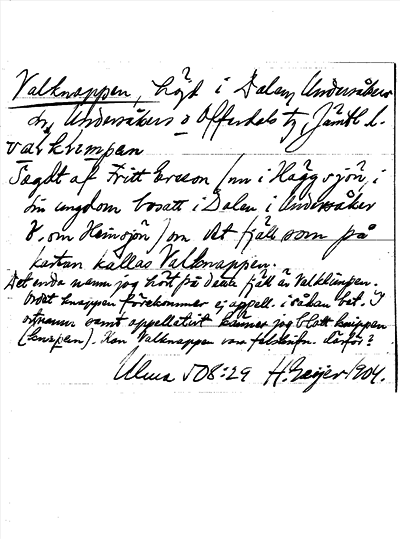 Valknappen, högt i Dalen, Undersåkers
sn, Undersåkers o Offerdals tg, Jämtl. l.
valklimpen
Sagdt af Fritt Ersson (nu i Häggsjön, i
sin ungdom bosatt i Dalen i Undersåker
V. om Hensjön) om det fjäll som på
kartan kallas Valknappen.
Det enda namn jag hört på detta fjäll är Valklimpen.
Ordet knappen förekommer ej appell. i sådan bet. I
ortnamn samt appellativt känner jag blott knippen
(knɩpən). Kan Valknappen vara felskrifn. därför?
Ulma 508:29 H. Geijer 1904.